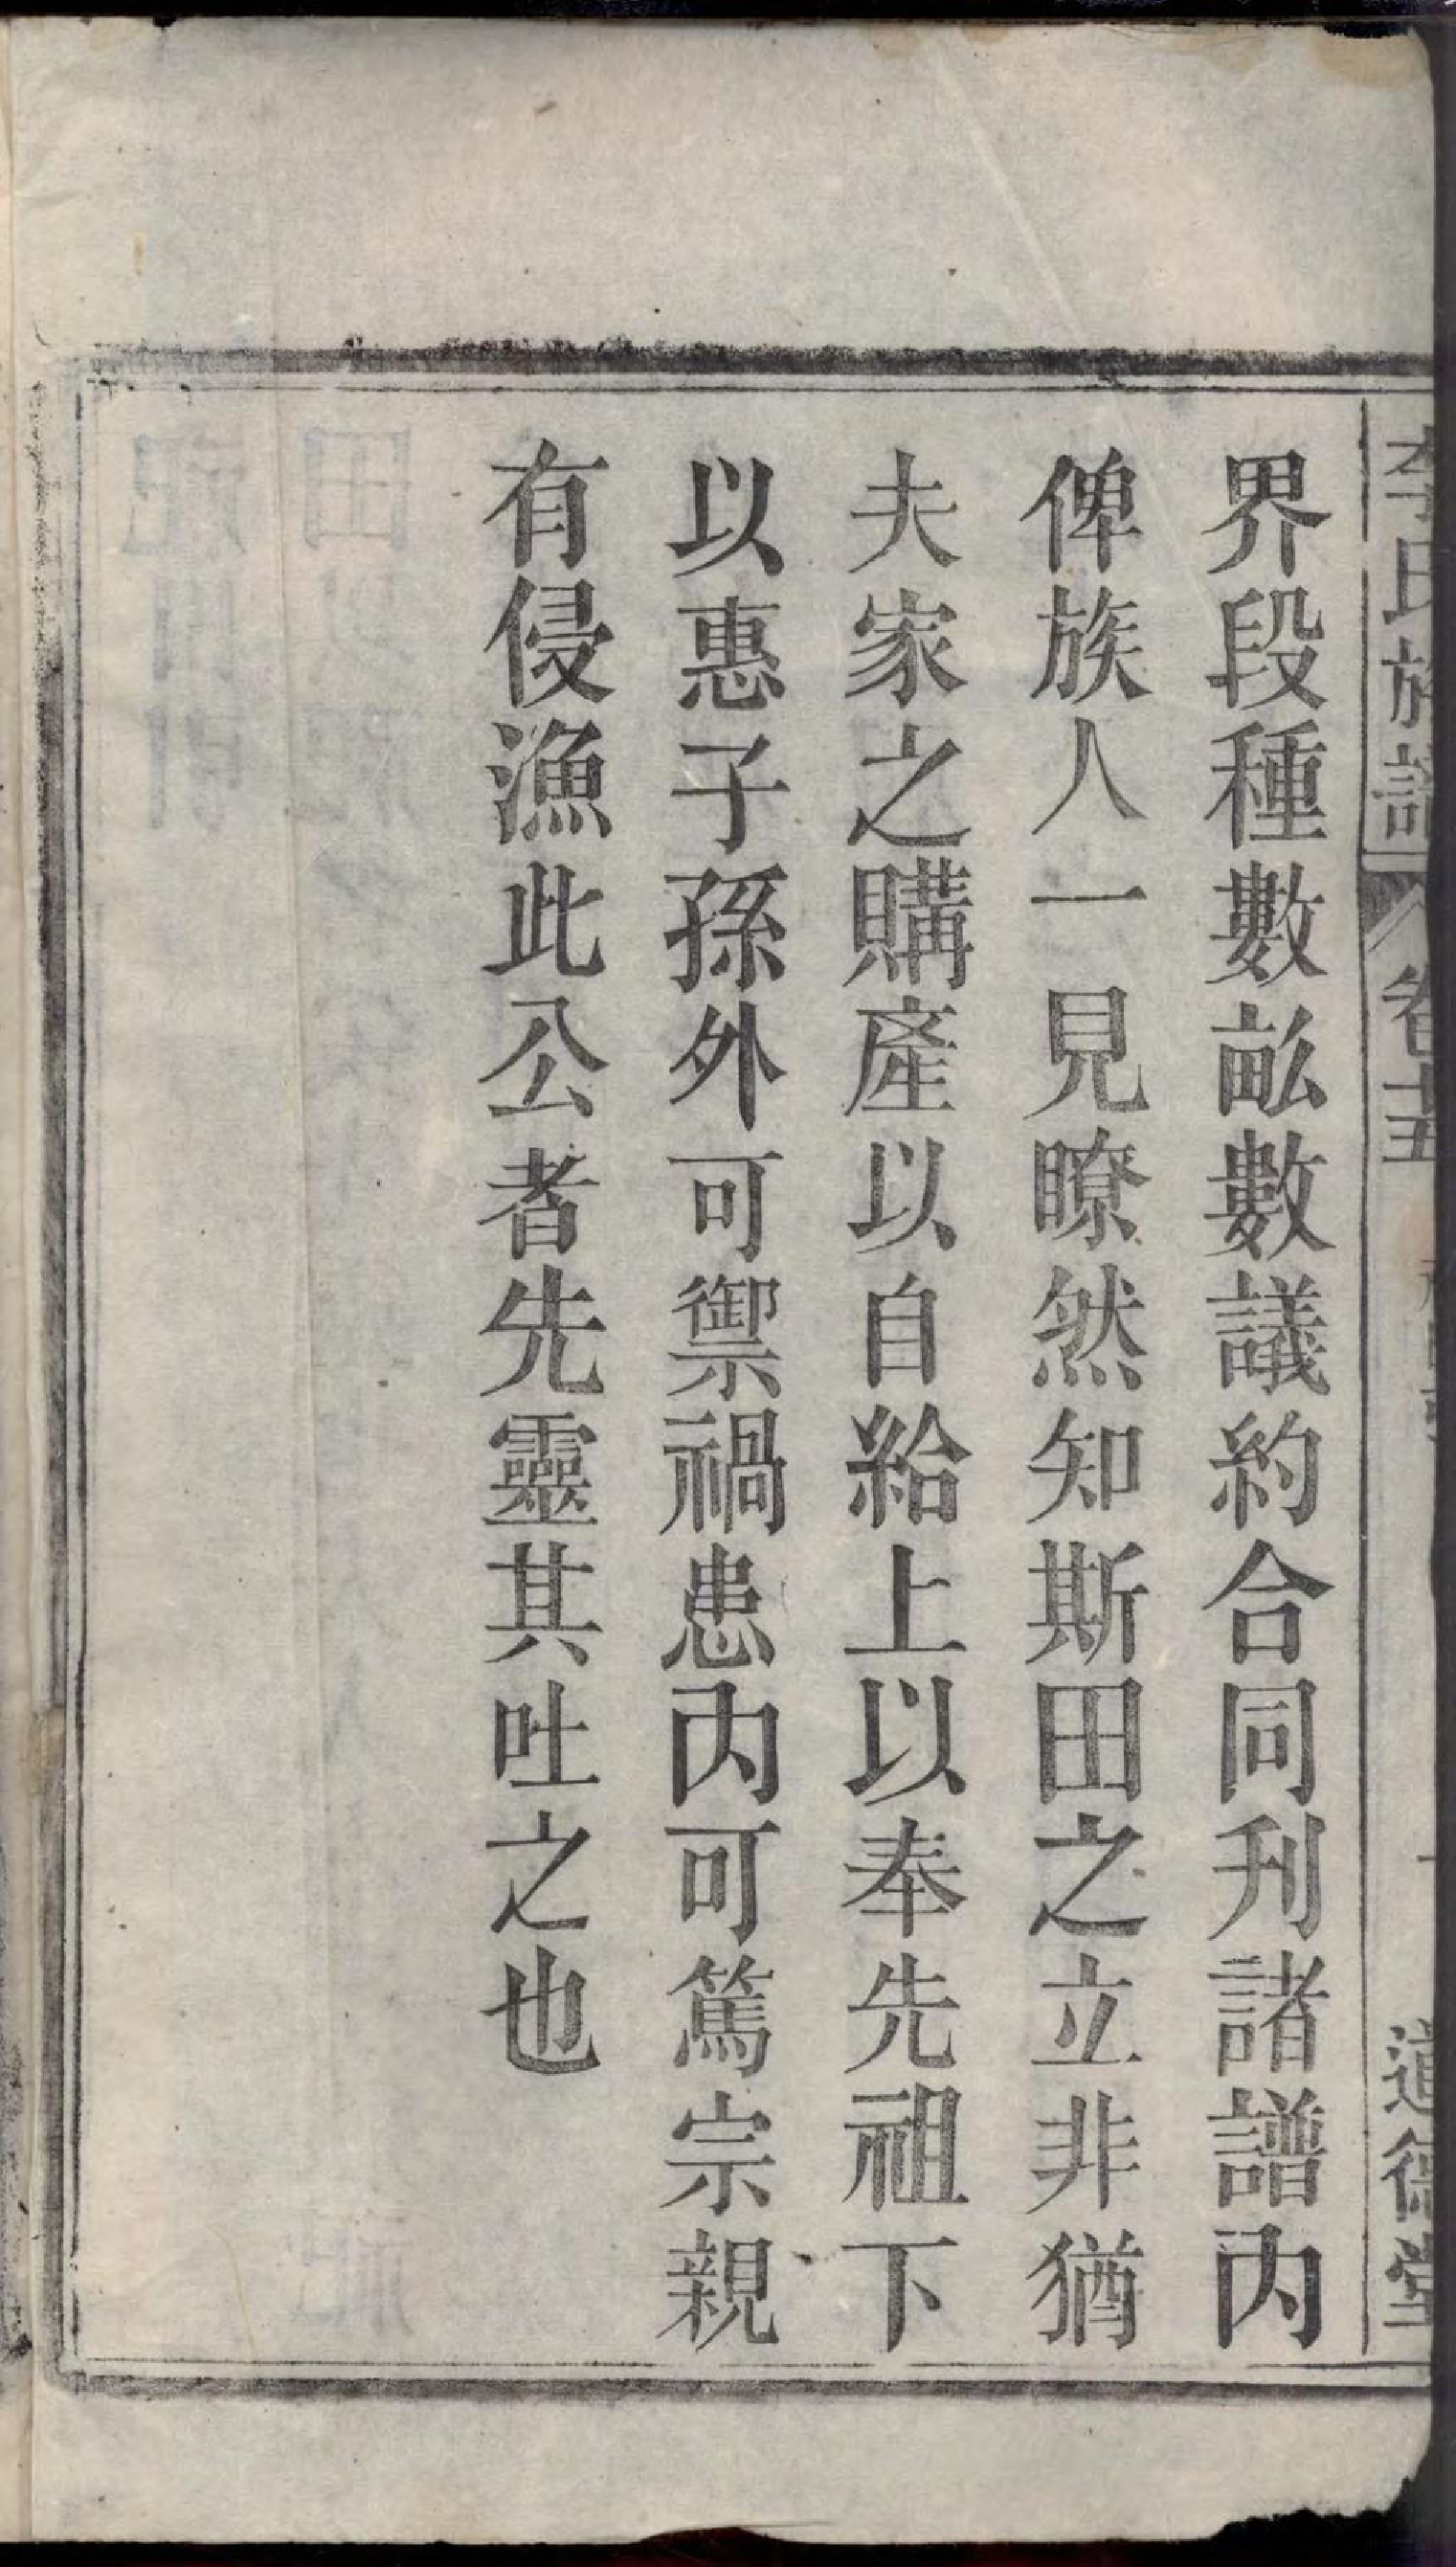 李氏族譜
卷十五
道德堂
界段種數畝數議約合同刋諸譜內
俾族人一見瞭然知斯田之立非猶
夫家之購產以自給上以奉先祖下
以惠子孫外可禦禍患內可篤宗親
有侵漁此公者先靈其吐之也